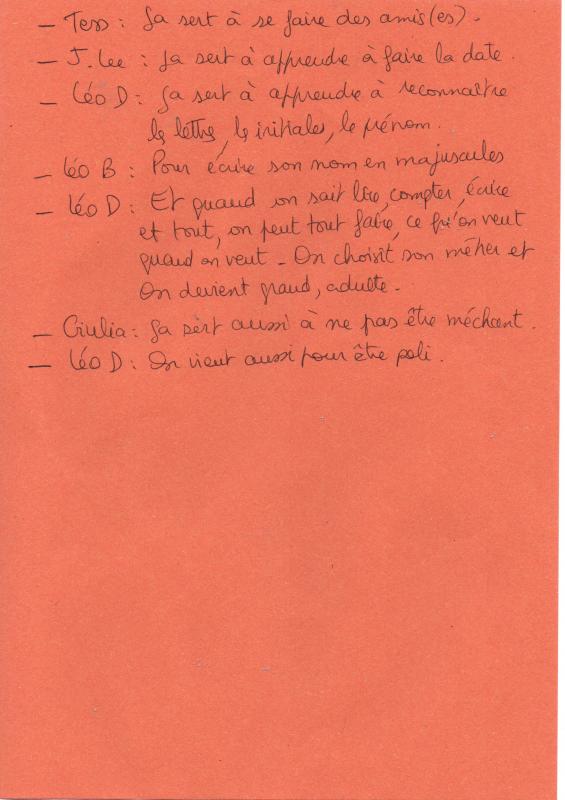 — Tess : ça sert à se faire des amis(es).
— J. Lee : ça sert à apprendre à faire la date.
— Léo D : ça sert à apprendre à reconnaître
les lettres, les initiales, le prénom.
— Léo B : Pour écrire son nom en majuscules
— Léo D : Et quand on sait lire, compter, écrire
et tout, on peut tout faire, ce qu'on veut
quand on veut - On choisit son métier et
On devient grand, adulte -
— Giulia : ça sert aussi à ne pas être méchant.
— Léo D : On vient aussi pour être poli.